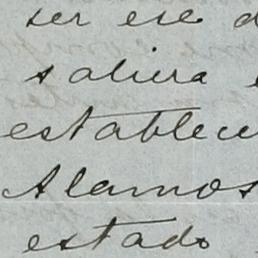 ser ese d
saliera e
establecu
Alamos
estado